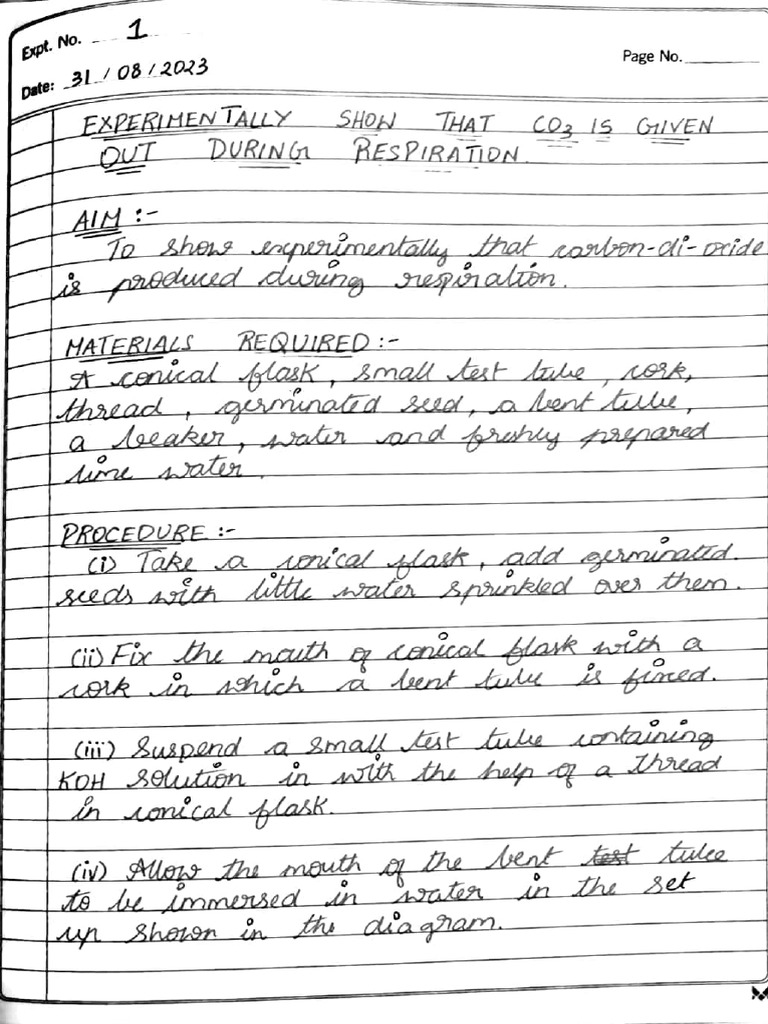 Expt. No. 1
Page No.
Date: 31 / 08 / 2023
EXPERIMENTALLY SHOW THAT CO3 IS GIVEN
OUT DURING RESPIRATION.
AIM :-
To show experimentally that carbon-di-oxide
is produced during respiration.
MATERIALS REQUIRED :-
A conical flask, small test tube, cork,
thread, germinated seed, a bent tube,
a beaker, water and freshly prepared
lime water.
PROCEDURE :-
(i) Take a conical flask, add germinated
seeds with little water sprinkled over them.
(ii) Fix the mouth of conical flask with a
cork in which a bent tube is fixed.
(iii) Suspend a small test tube containing
KOH solution in with the help of a thread
in conical flask.
(iv) Allow the mouth of the bent test tube
to be immersed in water in the set
up shown in the diagram.